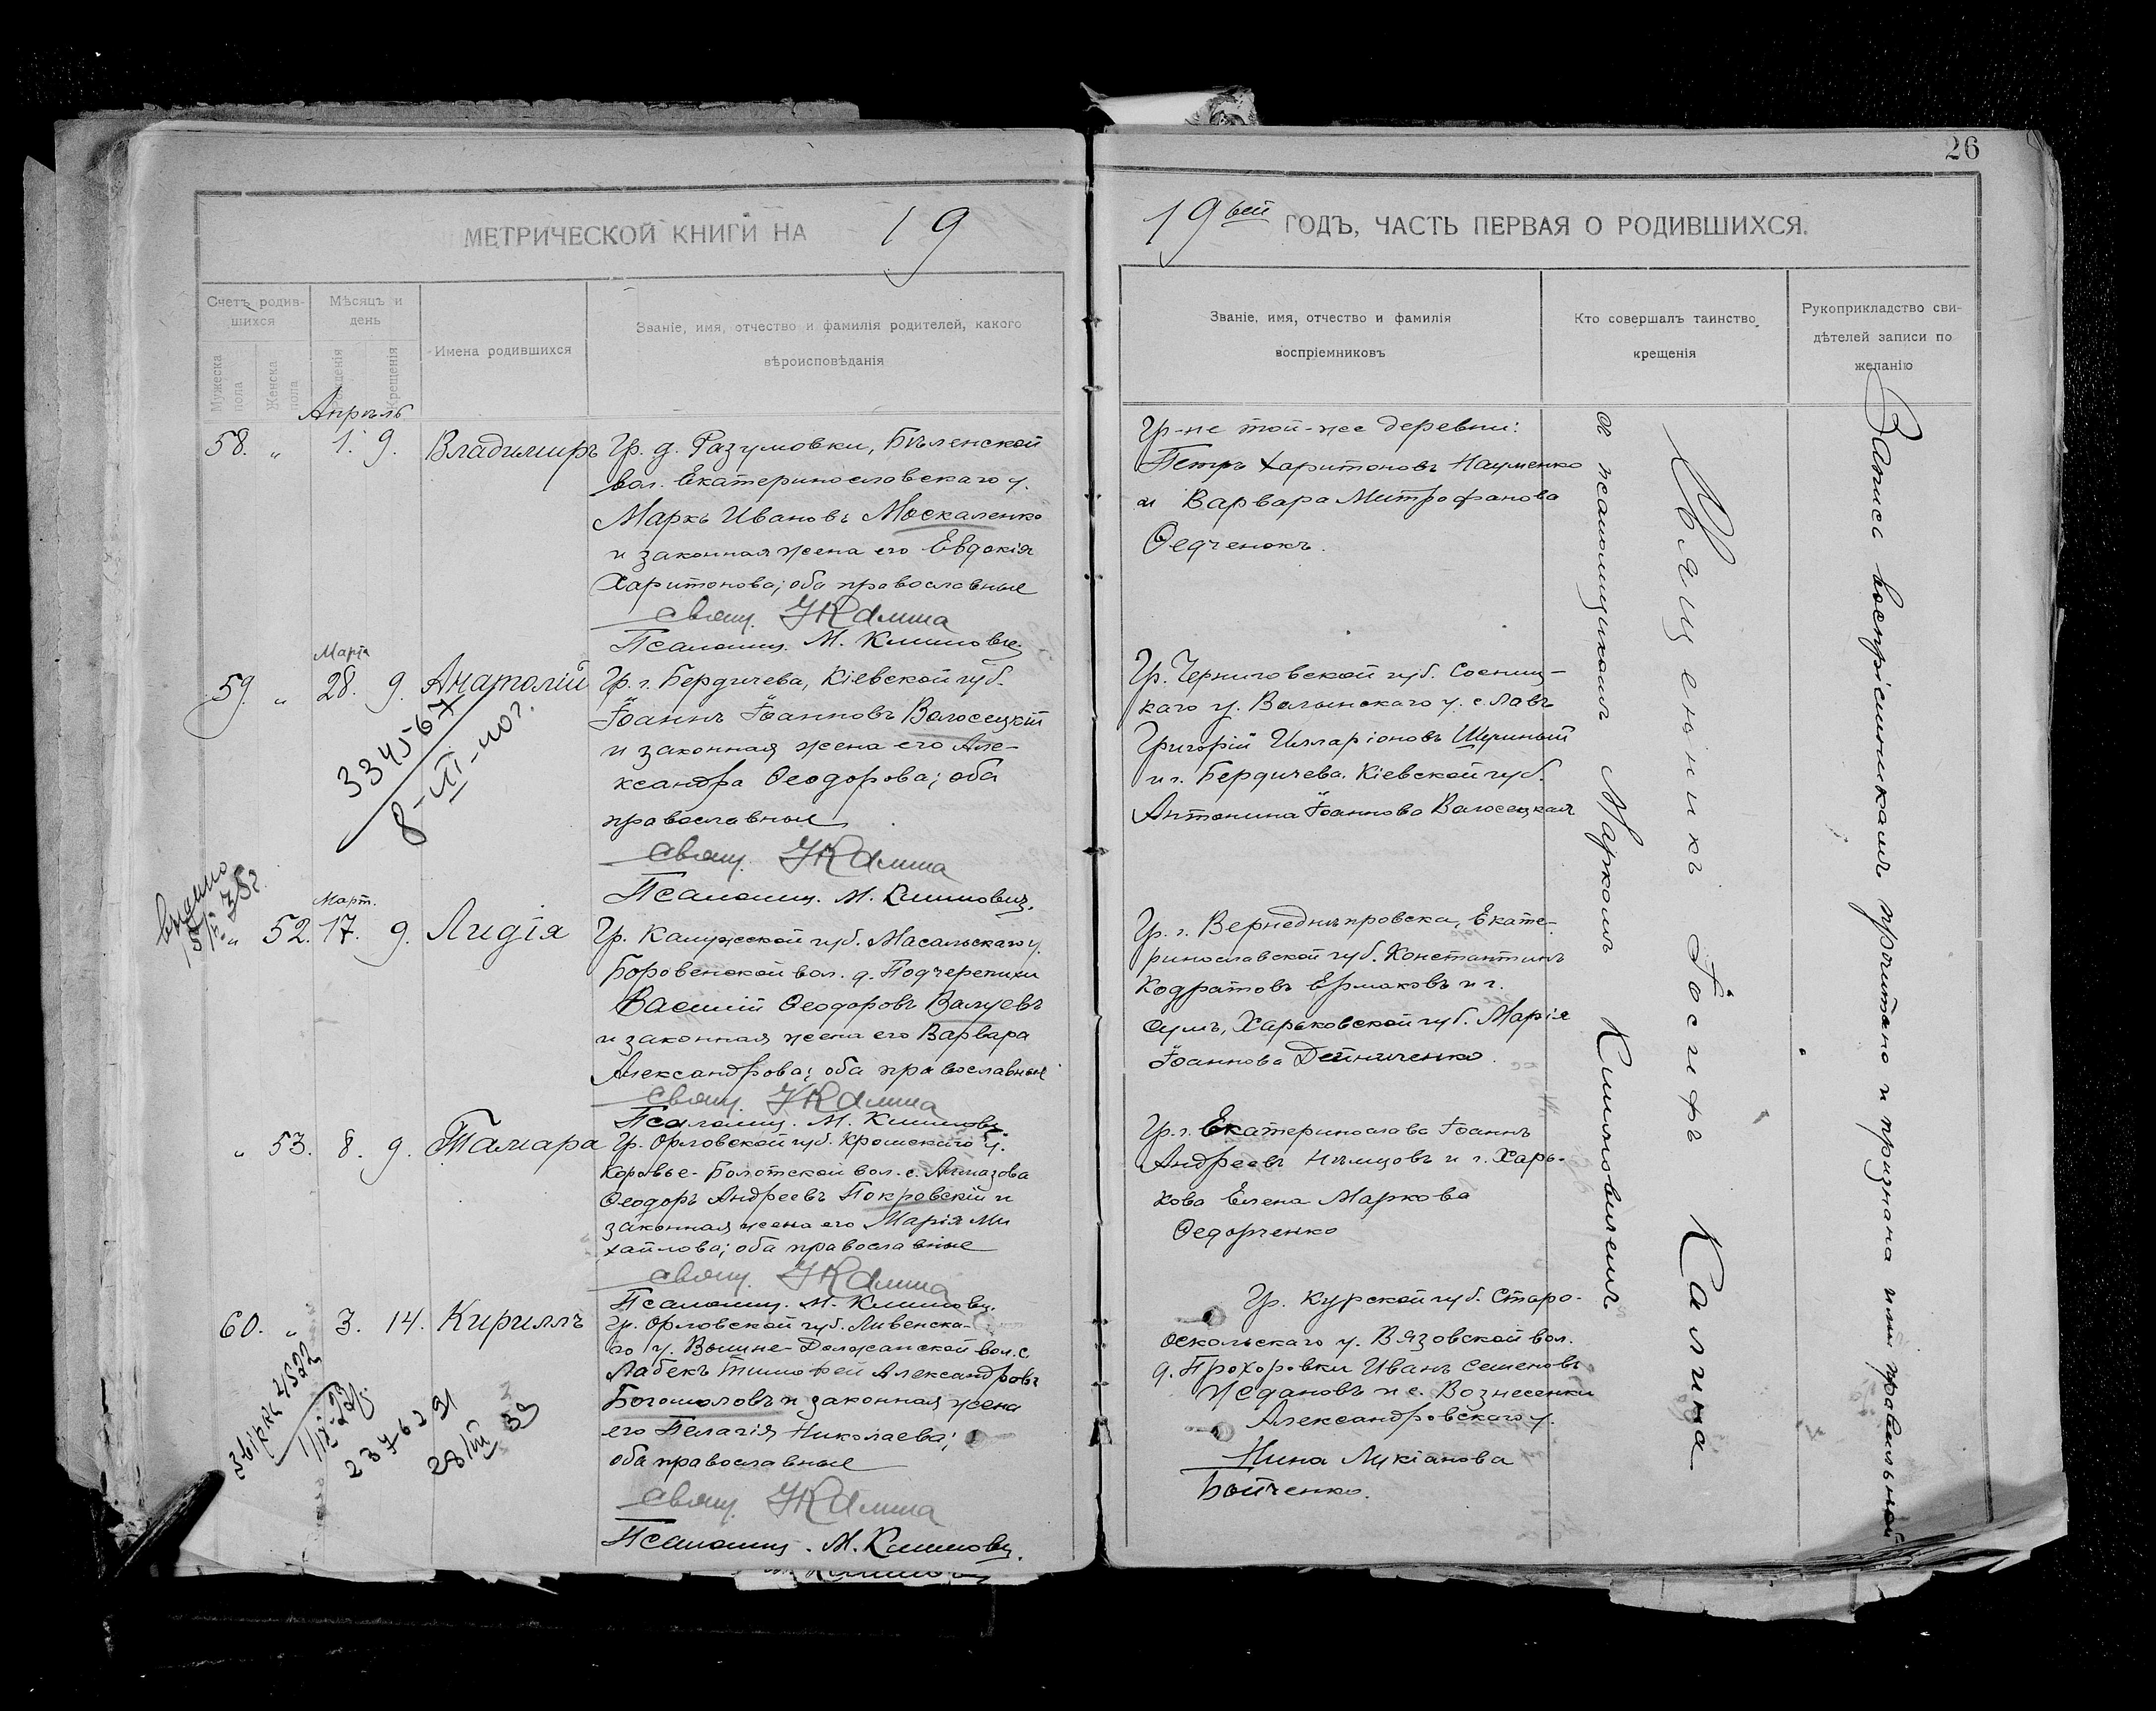 26
МЕТРИЧЕСКОЙ КНИГИ НА 19
19 ГОДЪ, ЧАСТЬ ПЕРВАЯ О РОДИВШИХСЯ.
Счетъ родив-
шихся
Мужеска
пола
Женска
пола
Мѣсяцъ и
день
Рожденія
Крещенія
Имена родившихся
Званіе, имя, отчество и фамилія родителей, какого
вѣроисповѣданія
Званіе, имя, отчество и фамилія
воспріемниковъ
Кто совершалъ таинство
крещенія
Рукоприкладство сви-
дѣтелей записи по
желанію
Апрѣль
58. " 1. 9. Владимиръ
Гр. д. Разумовки, Бѣленской
вол. Екатеринославскаго у.
Маркъ Ивановъ Москаленко
и законная жена его Евдокія
Харитонова; оба православные
Свящ. І Калина
Псаломщ. М. Климович
Гр-не той-же деревни:
Петръ Харитоновъ Науменко
и Варвара Митрофанова
Ѳедченокъ.
Марта
59. " 28. 9. Анатолій
334567
8-III-40г.
Гр. г. Бердичева, Кіевской губ.
Іоаннъ Іоанновъ Волосецкій
и законная жена его Але-
ксандра Ѳеодорова; оба
православные
Свящ. І Калина
Псаломщ. М. Климович.
Гр. Черниговской губ. Сосниц-
каго у. Волынскаго у. с. Лавъ
Григорій Илларіоновъ
и г. Бердичева, Кіевской губ.
Антонина Іоаннова Волосецкая
Март.
" 52. 17. 9. Лидія
Гр. Калужской губ. Масальскаго у.
Боровенской вол. д. Подчерепихи
Василій Ѳеодоровъ Валуевъ
и законная жена его Варвара
Александрова; оба православные
Свящ. І Калина
Псаломщ. М. Климович.
Гр. г. Верхнеднѣпровска, Екате-
ринославской губ. Константинъ
Кодратовъ Ермаковъ и г.
Сумъ, Харьковской губ. Марія
Іоаннова Дейниченко.
" 53. 8. 9. Тамара
Гр. Орловской губ. Кромскаго у.
Коровье-Болотской вол. с. Алмазова
Ѳеодоръ Андреевъ Покровскій и
законная жена его Марія Ми
хайлова; оба православные
Свящ. І Калина
Псаломщ. М. Климович.
Гр. г. Екатеринослава Іоаннъ
Андреевъ Нѣмцовъ и г. Харь-
кова Елена Маркова
Ѳедорченко
60. " 3. 14. Кириллъ
237629
28/III 39
Гр. Орловской губ. Ливенска-
го у. Вышне-Должанской вол. с.
Лабекъ Тимофей Александровъ
Богомоловъ и законная жена
его Пелагія Николаева;
оба православные
Свящ. І Калина
Псаломщ. М. Климович.
Гр. Курской губ. Старо-
оскольскаго у. Вязовской вол.
д. Прохоровки Иванъ Семеновъ
Ждановъ и с. Вознесенки
Александровскаго у.
Нина Лукіанова
Бойченко.
Священникъ Іосифъ Калина
съ псаломщикомъ Маркомъ Климовичемъ
Запись воспріемникамъ прочитана и признана ими правильной